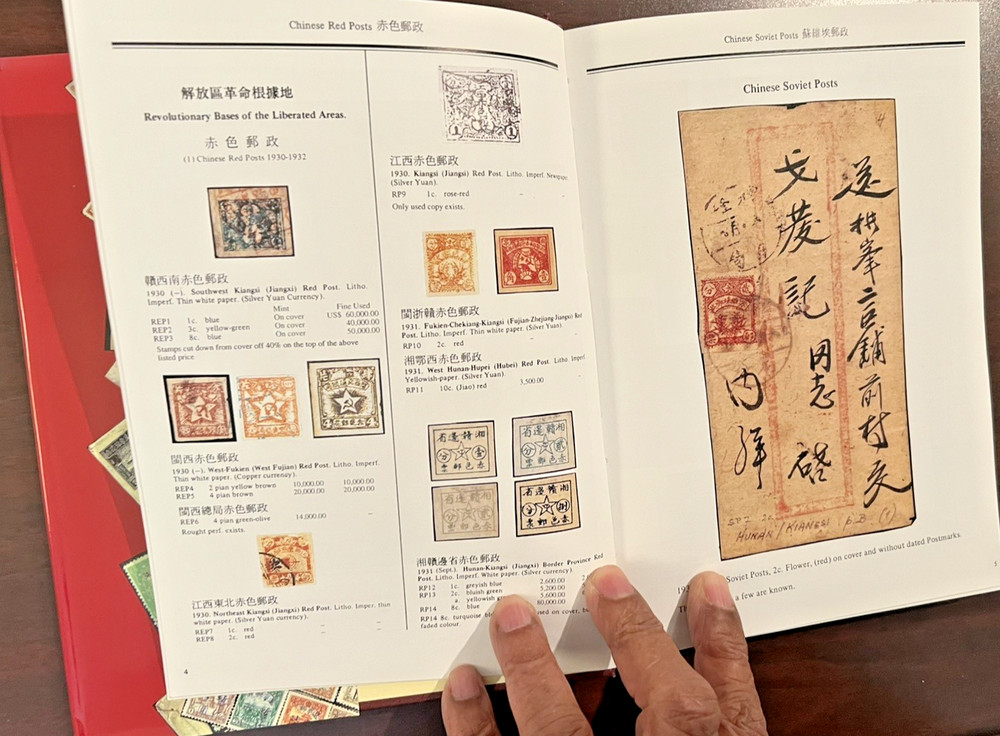 Chinese Red Posts 赤色郵政
解放區革命根據地
Revolutionary Bases of the Liberated Areas.
赤色郵政
(1) Chinese Red Posts 1930-1932
贛西南赤色郵政
1930 (–). Southwest Kiangsi (Jiangxi) Red Post. Litho.
Imperf. Thin white paper. (Silver Yuan Currency).
Mint Fine Used
REP1 1c. blue On cover US$ 60,000.00
REP2 3c. yellow-green On cover 40,000.00
REP3 8c. blue On cover 50,000.00
Stamps cut down from cover off 40% on the top of the above
listed price
閩西赤色郵政
1930 (–). West-Fukien (West Fujian) Red Post. Litho. Imperf.
Thin white paper. (Copper currency).
REP4 2 pian yellow brown 10,000.00 10,000.00
REP5 4 pian brown 20,000.00 20,000.00
閩西總局赤色郵政
REP6 4 pian green-olive 14,000.00 –
Rought perf. exists.
江西東北赤色郵政
1930. Northeast Kiangsi (Jiangxi) Red Post. Litho. Imper. thin
white paper. (Silver Yuan currency).
REP7 1c. red – –
REP8 2c. red – –
4
1 1
江西赤色郵政
1930. Kiangsi (Jiangsi) Red Post. Litho. Imperf. Newspaper
(Silver Yuan).
RP9 1c. rose-red – –
Only used copy exists.
閩浙贛赤色郵政
1931. Fukien-Chekiang-Kiangsi (Fujian-Zhejiang-Jiangxi) Red
Post. Litho. Imperf. Thin white paper. (Silver Yuan).
RP10 2c. red –
湘鄂西赤色郵政
1931. West Hunan-Hupei (Hubei) Red Post. Litho. Imperf
Yellowish-paper. (Silver Yuan).
RP11 10c. (Jiao) red 3,500.00
省邊贛湘
分 壹
票郵色赤
省邊贛湘
分 貳
票郵色赤
省邊贛湘
票郵色赤
省邊贛湘
分 捌
票郵色赤
湘贛邊省赤色郵政
1931 (Sept.). Hunan-Kiangsi (Jiangxi) Border Province Red
Post. Litho. Imperf. White paper. (Silver Yuan).
RP12 1c. greyish blue 2,600.00
RP13 2c. bluish green 5,200.00
a. yellowish 5,600.00
RP14 8c. blue 80,000.00
RP14 8c. turquoise on cover, but
faded colour.
Chinese Soviet Posts 蘇維埃郵政
Chinese Soviet Posts
送
前村交
同志
啓
内
HUNAN/KIANGSI P.B (1)
Soviet Posts, 2c. Flower, (red) on cover and without dated Postmarks.
a few are known.